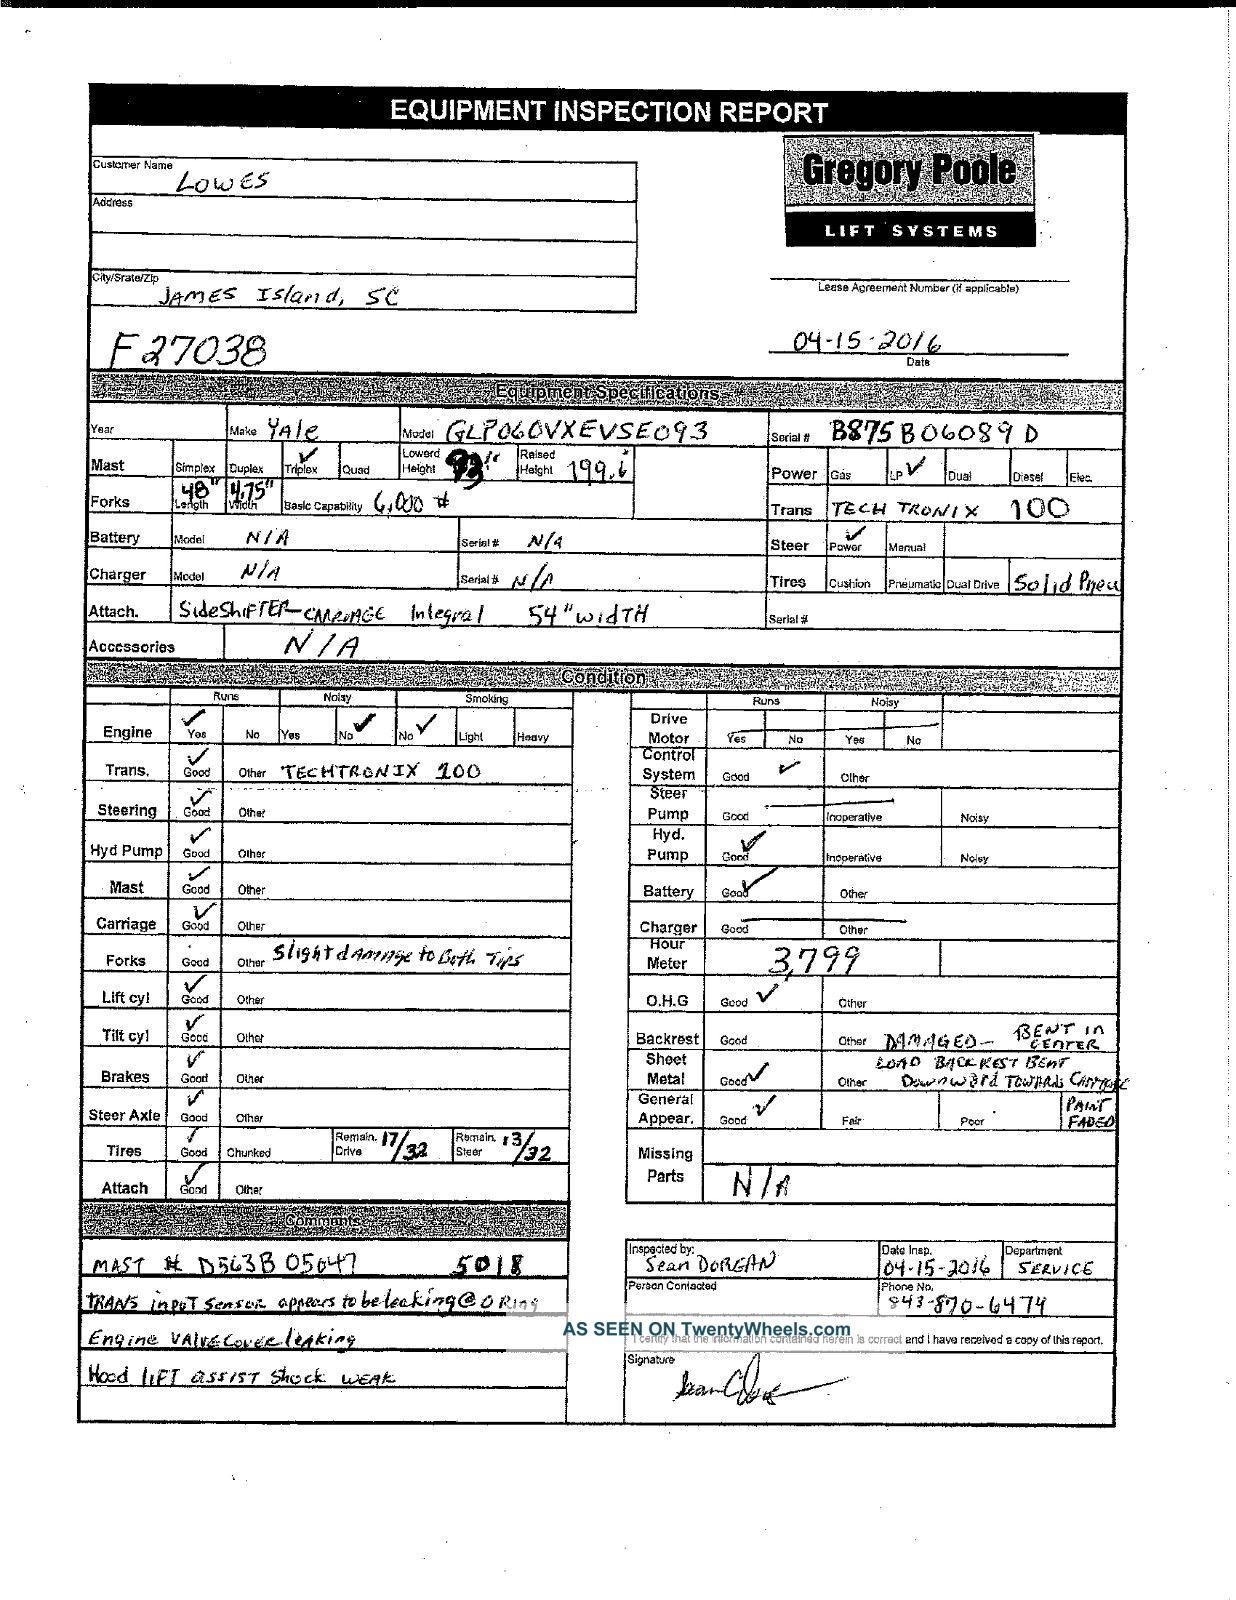 EQUIPMENT INSPECTION REPORT
Customer Name LOWES
Gregory Poole
LIFT SYSTEMS
Address
City/Srate/Zip JAMES Island, SC
Lease Agreement Number (if applicable)
F27038
04-15-2016
Date
Equipment Specifications
Year Make YAle Model GLP060VXEVSE093 Serial # B875B06089D
Mast Simplex Duplex Triplex ✓ Quad Lowerd Height Raised Height 199.6 Power Gas LP ✓ Dual Diesel Elec.
Forks 48" Length 4.75" Width Basic Capability 6,000 # Trans TECHTRONIX 100
Battery Model N/A Serial # N/A Steer Power ✓ Manual
Charger Model N/A Serial # N/A Tires Cushion Pneumatic Dual Drive Solid Pneu
Attach. SideSHIFTER-CARRIAGE Integral 54" widTH Serial #
Accessories N/A
Condition
Runs Noisy Smoking Runs Noisy
Engine ✓ Yes No Yes No ✓ No ✓ Light Heavy Drive Motor Yes No Yes No
Trans. ✓ Good Other TECHTRONIX 100 Control System Good ✓ Other
Steering ✓ Good Other Steer Pump Good Inoperative Noisy
Hyd Pump ✓ Good Other Hyd. Pump Good ✓ Inoperative Noisy
Mast ✓ Good Other Battery Good ✓ Other
Carriage ✓ Good Other Charger Good Other
Forks Good Other Slight dAmAge to Both Tips Hour Meter 3,799
Lift cyl ✓ Good Other O.H.G Good ✓ Other
Tilt cyl ✓ Good Other Backrest Good Other DAMAGED- BENT in CENTER
Brakes ✓ Good Other Sheet Metal Good ✓ Other LOAD BACKREST BENT Downward TOWARds CARRIAGE
Steer Axle ✓ Good Other General Appear. Good ✓ Fair Poor PAiNT FADED
Tires ✓ Good Chunked Remain. Drive 17/32 Remain. Steer 13/32 Missing Parts N/A
Attach ✓ Good Other
Comments
MAST # D563B05647 5018
TRANS input Sensor appears to be leaking @ O Ring
Engine VALVE Cover leaking
Hood LIFT ASSIST Shock WEAK
Inspected by: Sean DORGAN Date Insp. 04-15-2016 Department SERVICE
Person Contacted Phone No. 843-870-6474
AS SEEN ON TwentyWheels.com
I certify that the information contained herein is correct and I have received a copy of this report.
Signature